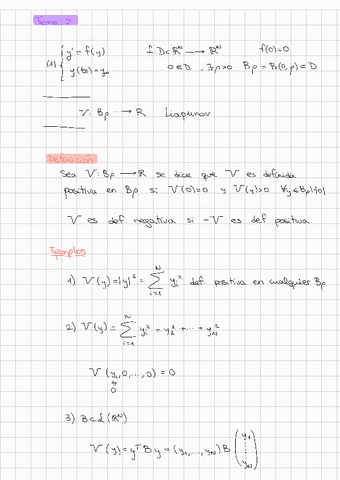 Tema 2
(1) { y' = f(y)   f: D ⊂ ℝᴺ → ℝᴺ   f(0)=0
y(t₀) = y₀   0 ∈ D, ∃ρ>0 Bρ = B(0,ρ) ⊂ D
V: Bρ → ℝ Liapunov
Definición
Sea V: Bρ → ℝ se dice que V es definida
positiva en Bρ si V(0)=0 y V(y)>0 ∀y∈Bρ\{0}
V es def negativa si -V es def positiva
Ejemplos
1) V(y) = |y|² = ∑ᵢ₌₁ᴺ yᵢ² def. positiva en cualquier Bρ
2) V(y) = ∑ᵢ₌₁ᴺ yᵢ² = y₂² + ... + yN²
V(y₁, 0, ..., 0) = 0
≠
0
3) B ∈ L(ℝᴺ)
V(y) = yᵀ B y = (y₁, ..., yN) B (y₁ ⋮ yN)